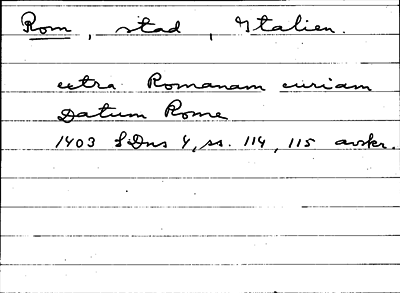 Rom, stad, Italien.
extra Romanam curiam
Datum Rome
1403 SDns 4, ss. 114, 115 avskr.